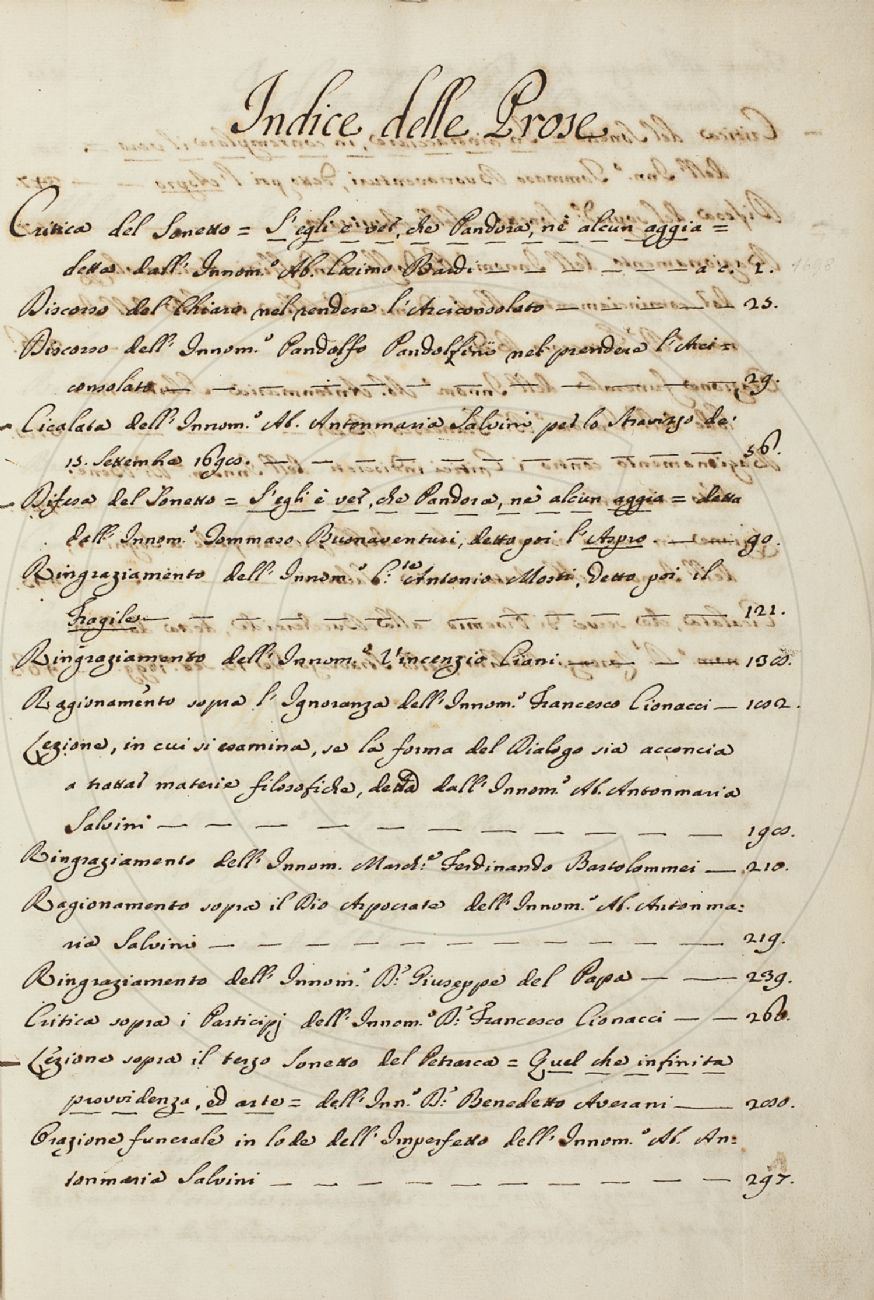 Indice delle Prose
Critica del Sonetto = S'egli è ver, che Pandora, nè alcun aggia =
detta dall'Innom.º Ab. Cosimo Bardi — — — — — a c. 1.
Discorso del Chiaro nel rendere l'Arciconsolato — — — 25.
Discorso dell'Innom.º Pandolfo Pandolfini nel prendere l'Arci=
consolato — — — — — — — — — — — 29.
Cicalata dell'Innom.º Ab. Antonmaria Salvini per lo Stravizzo de'
15. Settembre — — — — — — — — — — 56.
Difesa del Sonetto = S'egli è ver, che Pandora, nè alcun aggia = detta
dall'Innom.º Tommaso Buonaventuri, detto poi l'Aspro — — 90.
Ringraziamento dell'Innom.º Antonio Morsi, detto poi il
Fragile — — — — — — — — — — — 121.
Ringraziamento dell'Innom.º Vincenzio Ciani — — — —
Ragionamento sopra l'Ignoranza dell'Innom.º Francesco Cionacci —
Lezione, in cui si esamina, se la forma del Dialogo sia acconcia
a trattar materie filosofiche, detta dall'Innom.º Ab. Antonmaria
Salvini — — — — — — — — — — —
Ringraziamento dell'Innom. March.º Ferdinando Bartolommei — 210.
Ragionamento sopra il Dio Arpocrate dell'Innom.º Ab. Antonma=
ria Salvini — — — — — — — — — — — 219.
Ringraziamento dell'Innom.º D.r Giuseppe del Papa — — — 239.
Critica sopra i Participj dell'Innom.º D.r Francesco Cionacci — — 260.
Lezione sopra il terzo Sonetto del Petrarca = Quel che infinita
provvidenza, ed arte = dell'Inn.º D.r Benedetto Averani —— 280.
Orazione funerale in lode dell'Imperfetto dell'Innom.º Ab. An=
tonmaria Salvini — — — — — — — — — — 297.